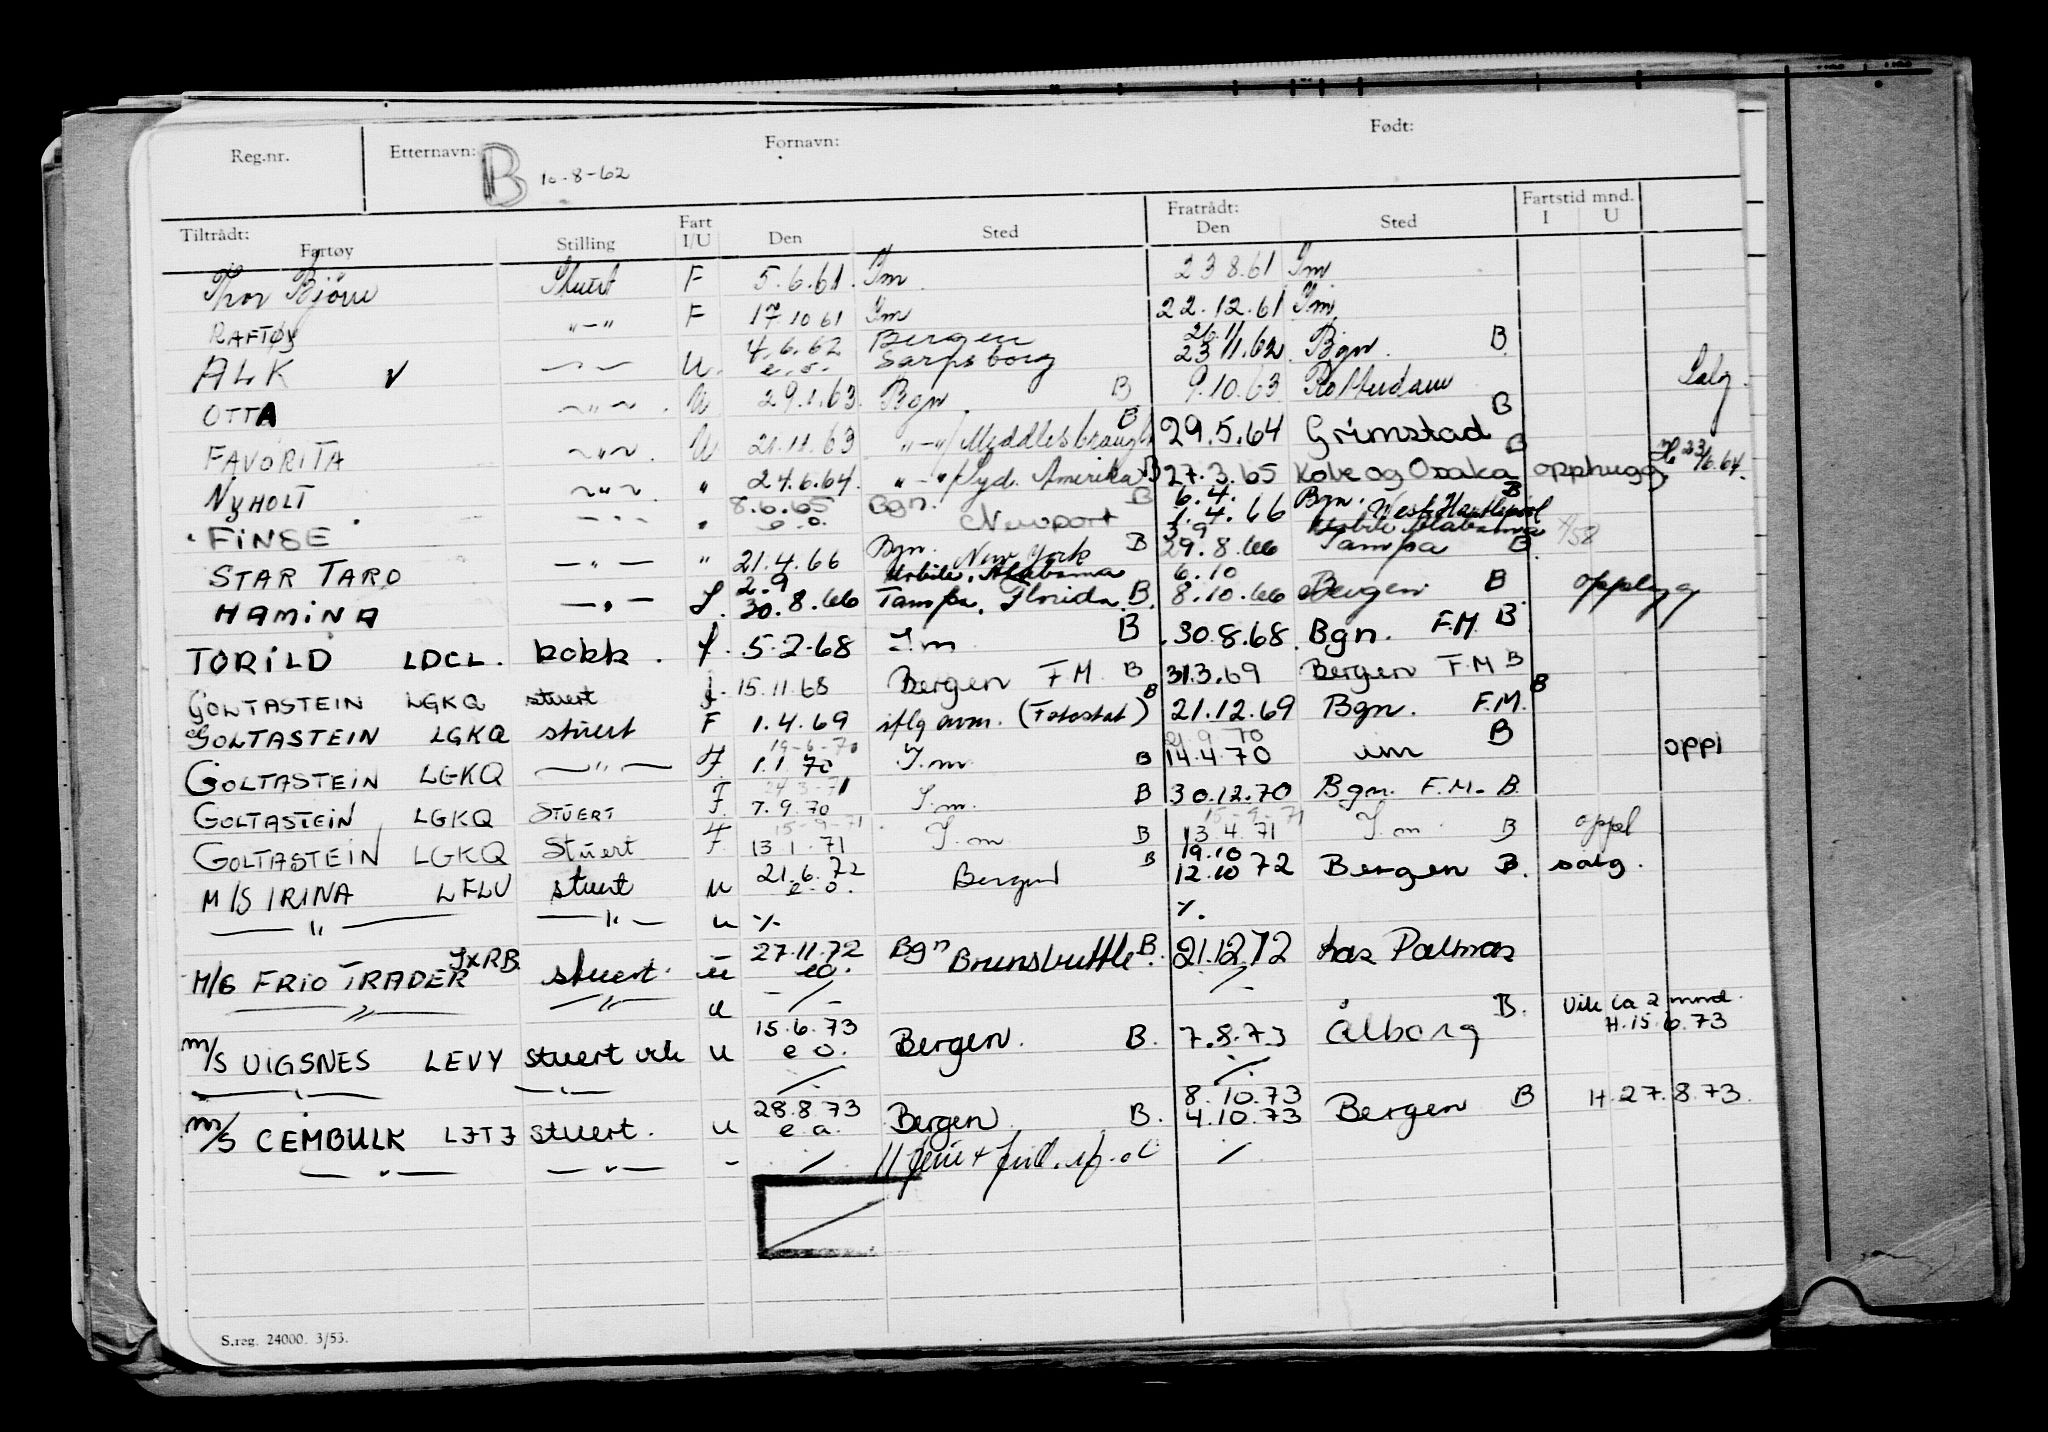 Reg.nr. Etternavn: B 10-8-62 Fornavn: Født:
Tiltrådt: Fartøy Stilling Fart I/U Den Sted Fratrådt: Den Sted Fartstid mnd. I U
Thor Bjørn Stuert F 5.6.61 Im 23 8.61 Im
RAFTØY "-" F 17 10 61 Im 22.12.61 Im
4.6.62 Bergen 26.11
ALK v U. e.o. Sarpsborg 23 11.62 Bgn. B
OTTA ~"~ . U 29.1.63 Bgn. B 9.10.63 Rotterdam Salg.
FAVORITA ~"~ . U 21.11.63 "-"/Middlesbraugh B 29.5.64 Grimstad B
NYHOLT ~"~ . " 24.6.64. "-"/Syd. Amerika B 27.3.65 Kobe og Osaka B opphugg. H 23/6.64.
8.6.65 Bgn. B 6.4. Bgn. B
FINSE -"- " e.o. Newport 1.4.66 West Hartlepool
Bgn. B 3.9 Mobile Alabama
STAR TARO -"- " 21.4.66 New York 29.8.66 Tampa B
2.9 Mobile, Alabama 6.10
HAMINA -"- 30.8.66 Tampa, Florida. B. 8.10.66 Bergen B
TORILD LDCL. kokk . f. 5.2.68 I.m B 30.8.68 Bgn. F.M. B
GOLTASTEIN LGKQ stuert f. 15.11.68 Bergen F M. B 31.3.69 Bergen F.M B
GOLTASTEIN LGKQ stuert F 1.4.69 iflg avm. (Fotostat) B 21.12.69 Bgn. F.M. B
19-6-70 21.9 70
GOLTASTEIN LGKQ —"— F. 1.1 70 I.m. B 14.4.70 im B oppl
GOLTASTEIN LGKQ STUERT F. 7.9.70 I.m. B 30.12.70 Bgn. F.M. B
15-9-71 15-9-71
GOLTASTEIN LGKQ Stuert F. 13 1.71 I.m. B 13.4.71 I.m B oppl
21.6.72 B 19.10
M/S IRINA LFLU stuert u e.o. Bergen 12.10 72 Bergen B. salg.
—"— —"— u %. %.
27.11.72 Bgn
M/S FRIO TRADER JXRB stuert. u eo. Brunsbuttle B. 21.12.72 Las Palmas
—"— —"— u -/- -/-
15.6.73 B. Vik ca 2 mnd.
M/S VIGSNES LEVY stuert vik u e o. Bergen. B. 7.8.73 Ålborg H.15.6.73
—"— —"— ./. ./.
28.8.73 8.10.73
M/S CEMBULK LJTJ stuert. u e.o. Bergen B. 4.10.73 Bergen B H.27.8.73.
—"— —"— - / /
S.reg. 24000. 3/53.